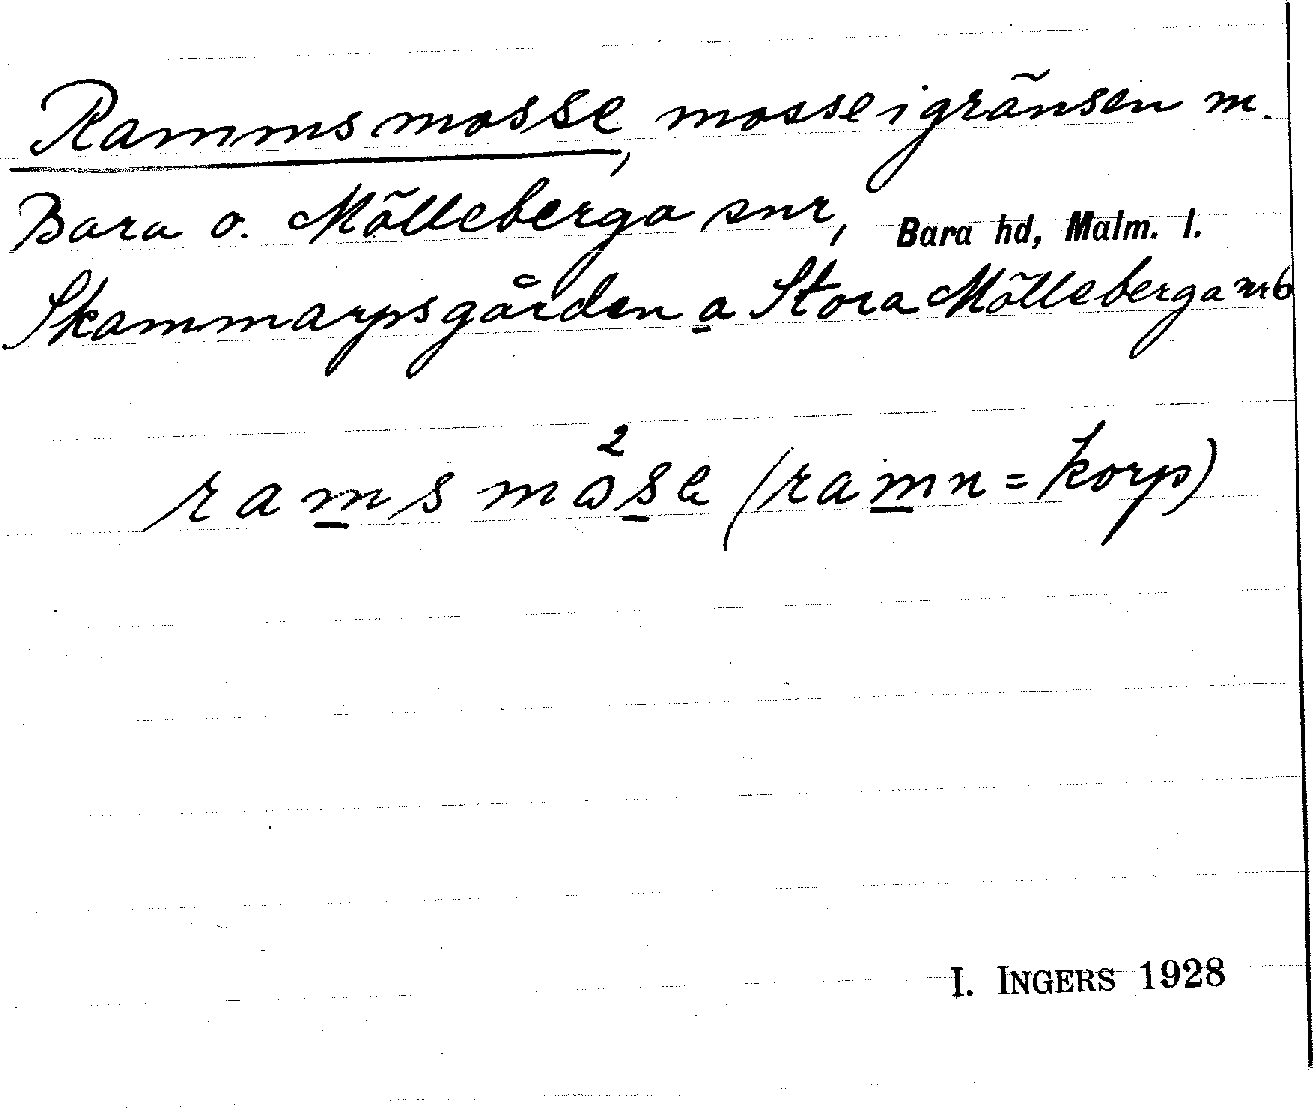 Rammsmosse, mosse i gränsen m.
Bara o. Mölleberga snr, Bara hd, Malm. l.
Skammarpsgården a Stora Mölleberga nr 6
ramsmo²se (ramn = korp)
I. INGERS 1928